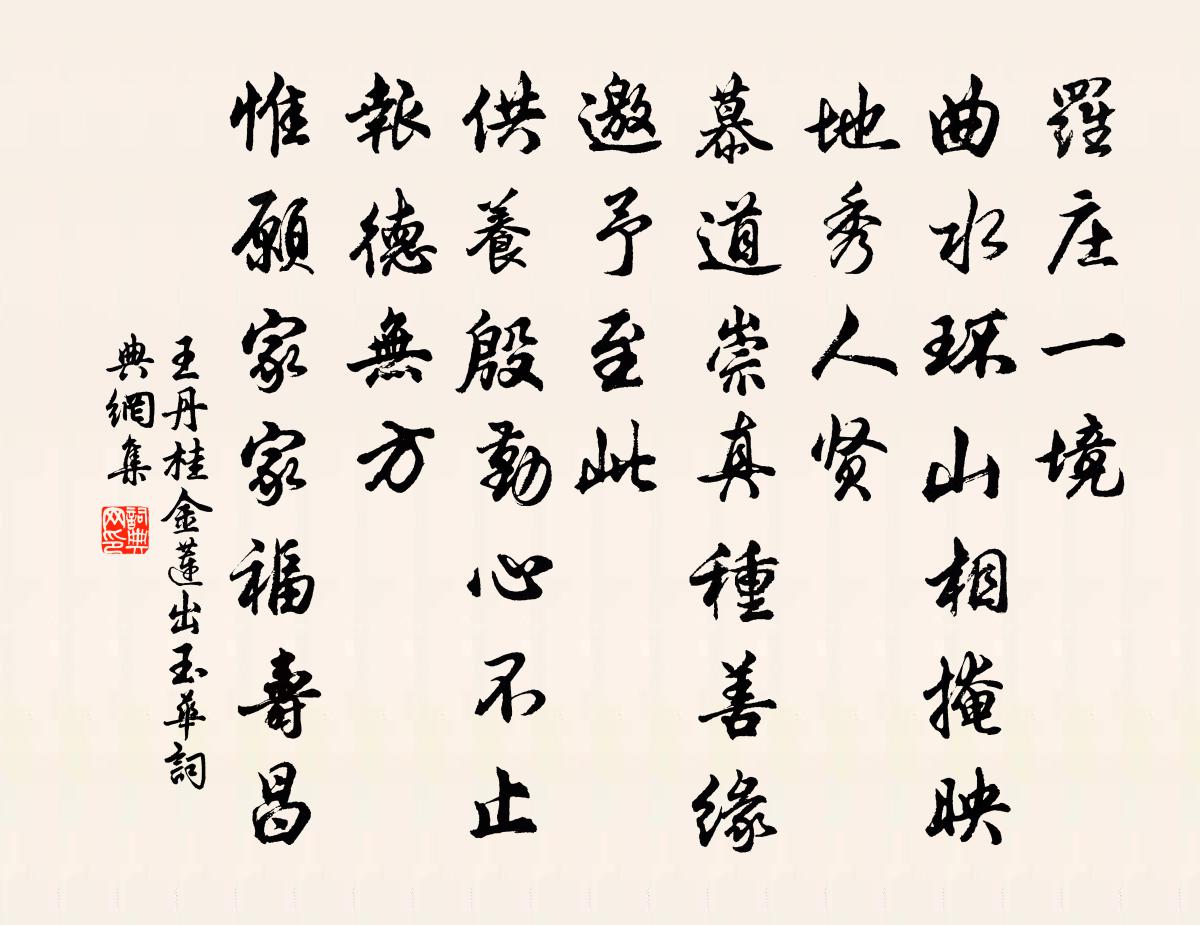 羅庄一境
曲水环山相掩映
地秀人贤
慕道崇真種善缘
邀予至此
供養殷勤心不止
報德無方
惟願家家福壽昌
王丹桂金蓮出玉華詞
典網集
詞典
网印